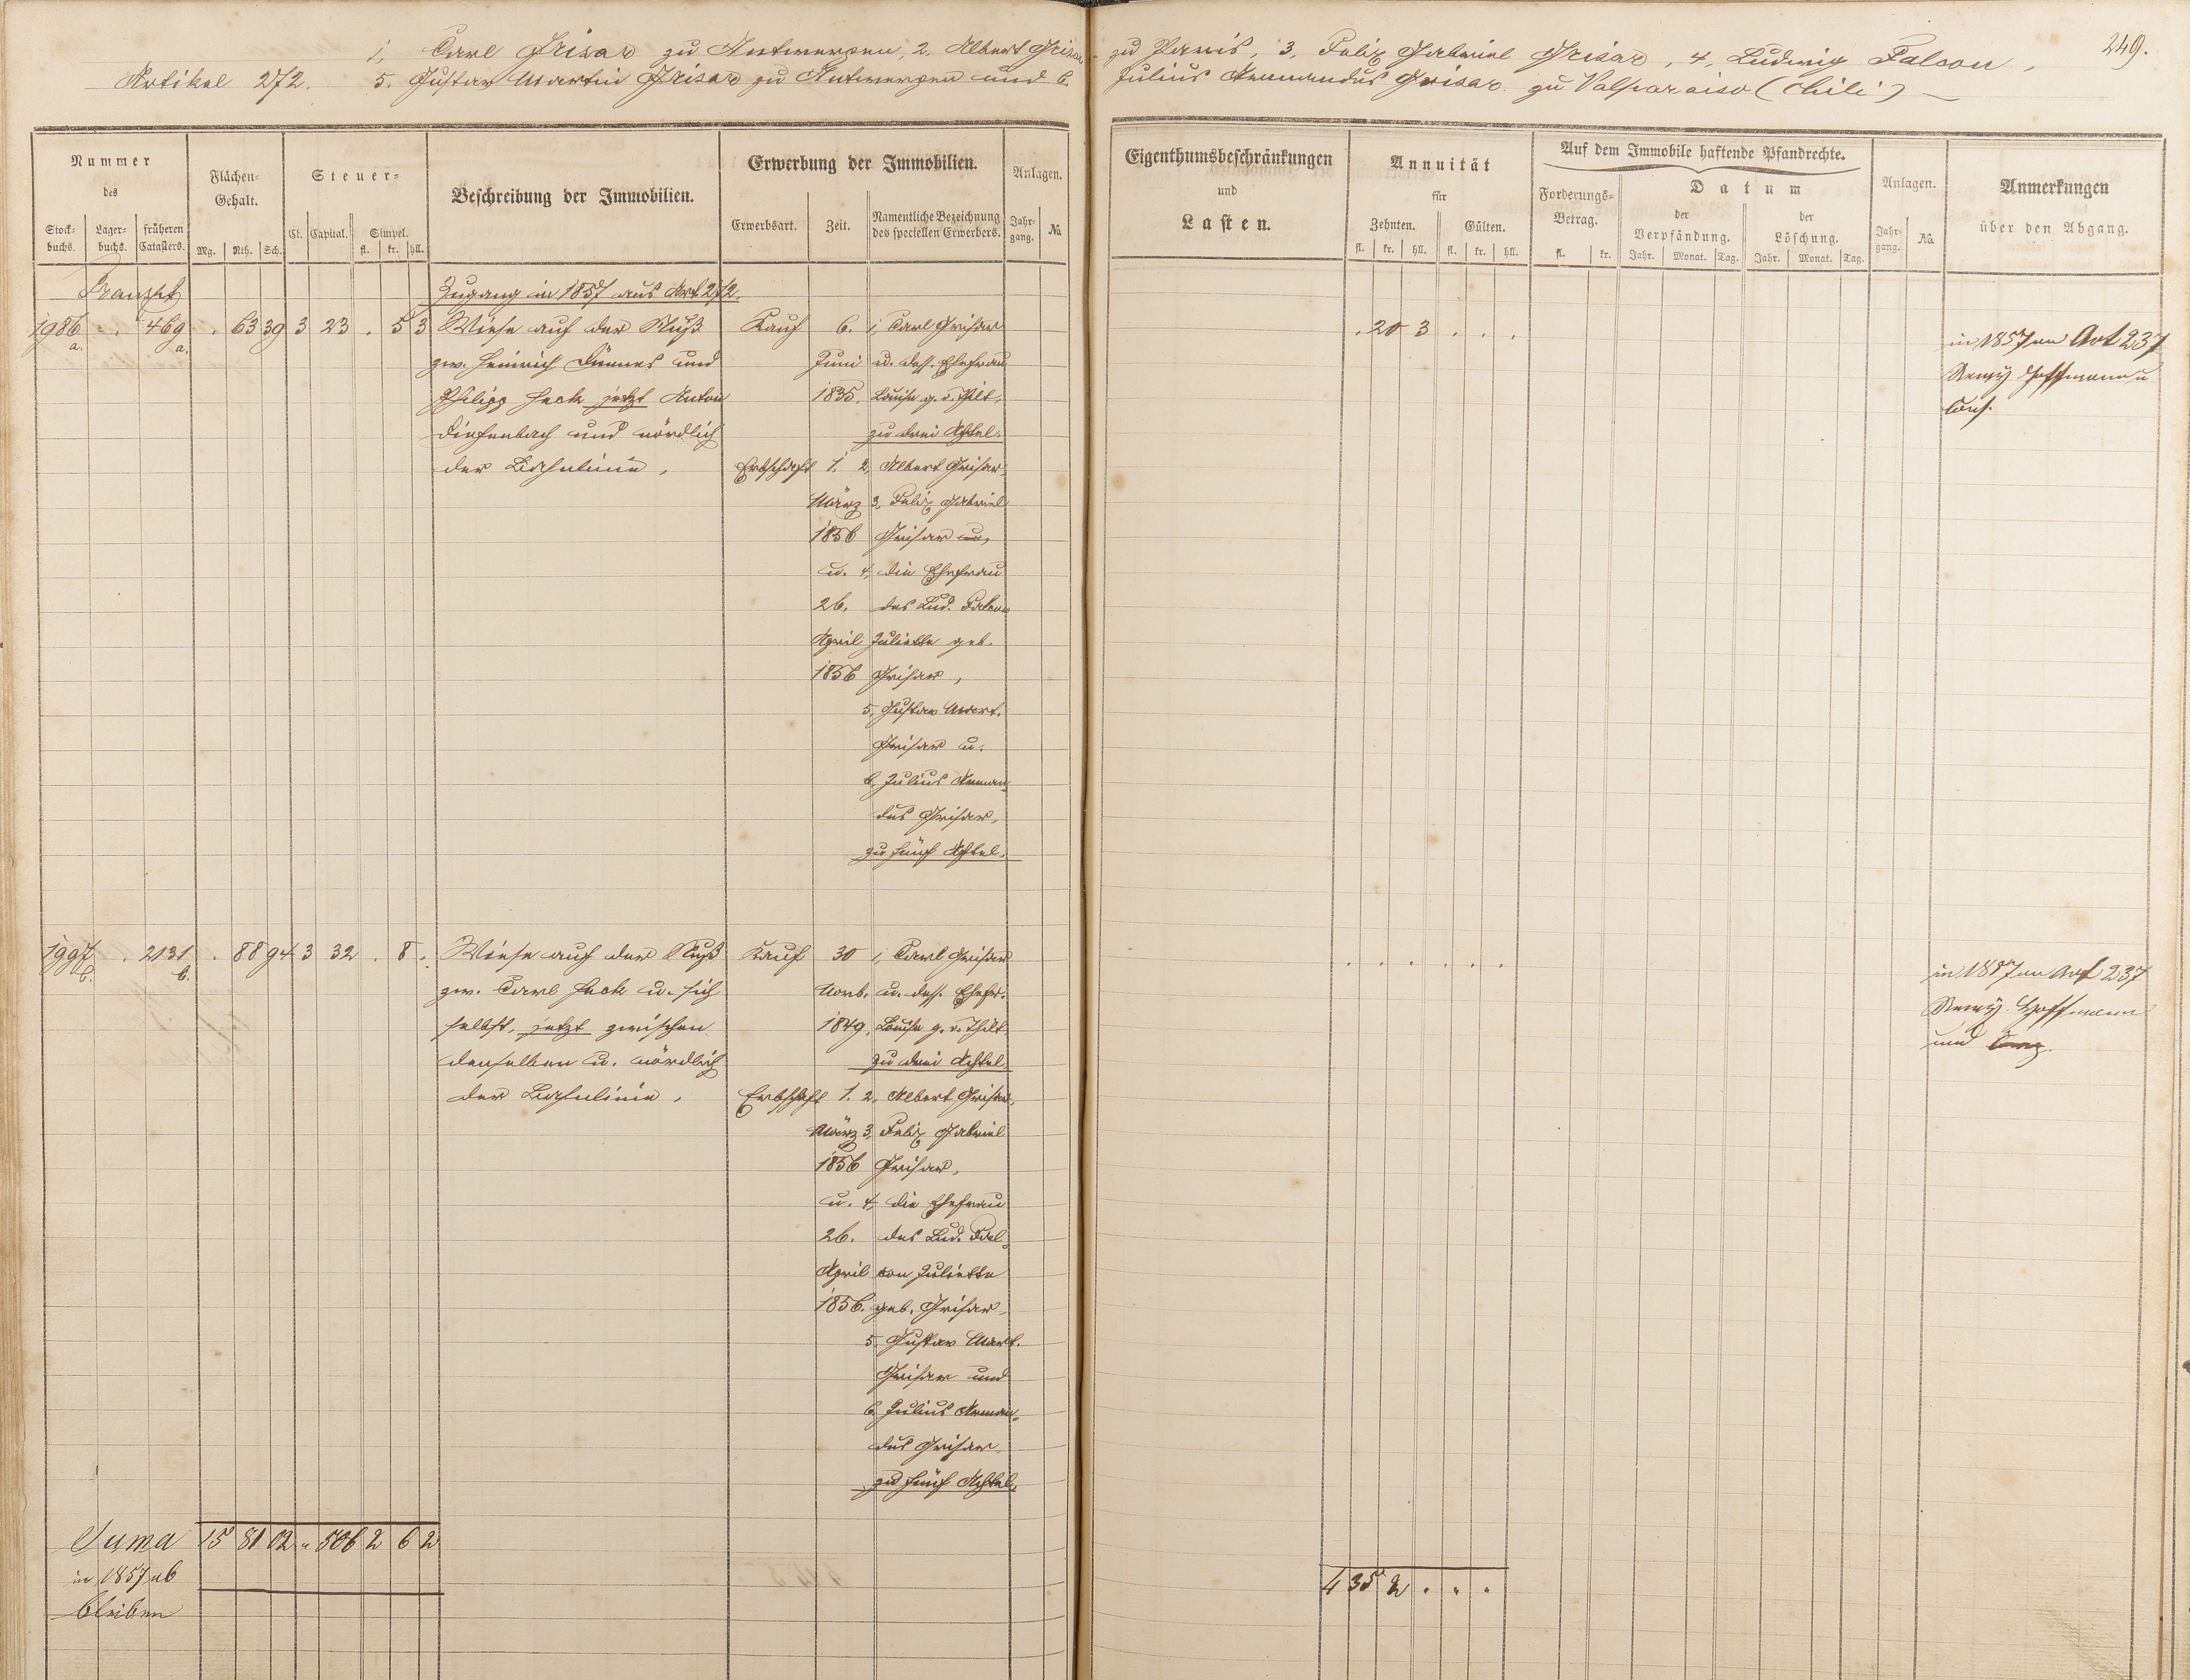 249.
1, Carl Grisar zu Antwerpen, 2, Albert Grisar zu Paris, 3, Felix Gabriel Grisar, 4, Ludwig Falcon,
Artikel 272. 5. Gustav Martin Grisar zu Antwerpen und 6. Julius Armandus Grisar zu Valparaiso (Chili)
Nummer des
Stock-buchs. Lager-buchs. früheren Catasters.
Flächen-Gehalt.
Mg. Rth. Sch.
Steuer-
Ct. Capital. Simpel.
fl. kr. hll.
Beschreibung der Immobilien.
Erwerbung der Immobilien.
Erwerbsart. Zeit. Namentliche Bezeichnung des speciellen Erwerbers.
Anlagen.
Jahr-gang. No.
Eigenthumsbeschränkungen
und
Lasten.
Annuität
für
Zehnten. Gülten.
fl. kr. hll. fl. kr. hll.
Auf dem Immobile haftende Pfandrechte.
Forderungs-Betrag.
fl. kr.
Datum
der Verpfändung. der Löschung.
Jahr. Monat. Tag. Jahr. Monat. Tag.
Anlagen.
Jahr-gang. No.
Anmerkungen
über den Abgang.
Transpt
Zugang in 1857 aus Art 272.
1986 a. . 469 a. . 63 39 3 23 . 5 3 Wiese auf der Kauf 6. 1, Carl Grisar . 20 3 . . . in 1857 an Art 237
zw. Heinrich und Juni u. dess. Ehefrau Remy Hoffmann u
Philipp Heck jetzt Anton 1835. Louise g. v. Cons.
Diefenbach und nördlich zu drei Achtel.
der Bahnlinie, Erbschaft 1. 2, Albert Grisar,
März 3, Felix Gabriel
1856 Grisar u,
u. 4, die Ehefrau
26. des Lud. Falcon
April Juliette geb.
1856 Grisar,
5, Gustav Mart.
Grisar u.
6, Julius Arman-
dus Grisar,
zu fünf Achtel.
1997 b. . 2131 b. . 88 94 3 32 . 8 . Wiese auf der Kauf 30 1, Carl Grisar . . . . . . in 1857 an Art 237
zw. Carl Heck u. sich Novb. u. dess. Ehefr. Remy Hoffmann
selbst, jetzt zwischen 1849, Louise g. v. und
denselben u. nördlich zu drei Achtel,
der Bahnlinie, Erbschaft 1. 2, Albert Grisar,
März 3, Felix Gabriel
1856 Grisar,
u. 4, die Ehefrau
26. des Lud. Fal-
April con Juliette
1856. geb. Grisar,
5, Gustav Mart.
Grisar und
6, Julius Arman-
dus Grisar,
zu fünf Achtel,
Suma 15 81 02 " 506 2 6 2
in 1857 ab 4 35 2 . " "
bleiben